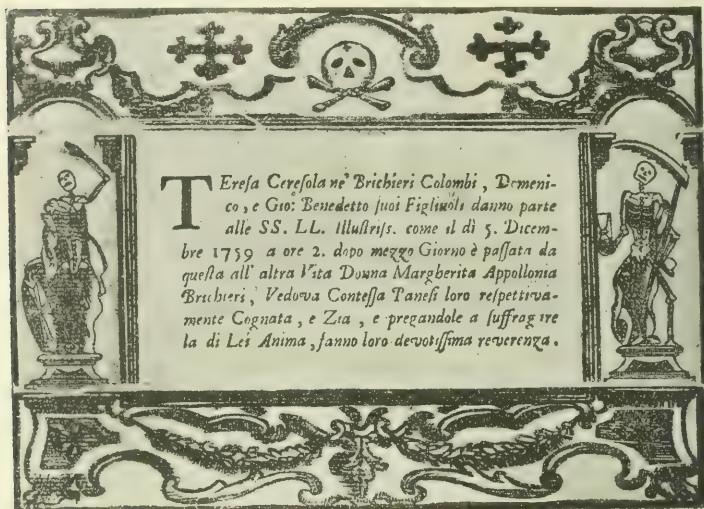 TEreſa Cereſola ne' Brichieri Colombi, Domeni-
co, e Gio: Benedetto ſuoi Figliuoli danno parte
alle SS. LL. Illuſtriſs. come il dì 5. Dicem-
bre 1759 a ore 2. dopo mezzo Giorno è paſſata da
queſta all' altra Vita Donna Margherita Appollonia
Brichieri, Vedova Conteſſa Paneſi loro reſpettiva-
mente Cognata, e Zia, e pregandole a ſuffragare
la di Lei Anima, fanno loro devotiſſima reverenza.